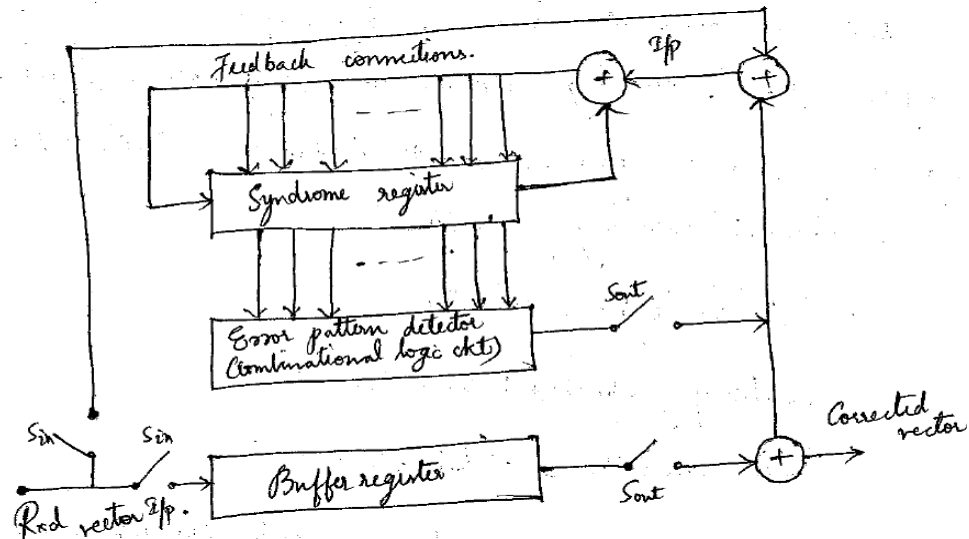 Feedback connections.
I/p
+
+
Syndrome register
Sout
Error pattern detector
(Combinational logic ckt)
Sin
Sin
Corrected
vector
Buffer register
+
Sout
Rxd vector I/p.